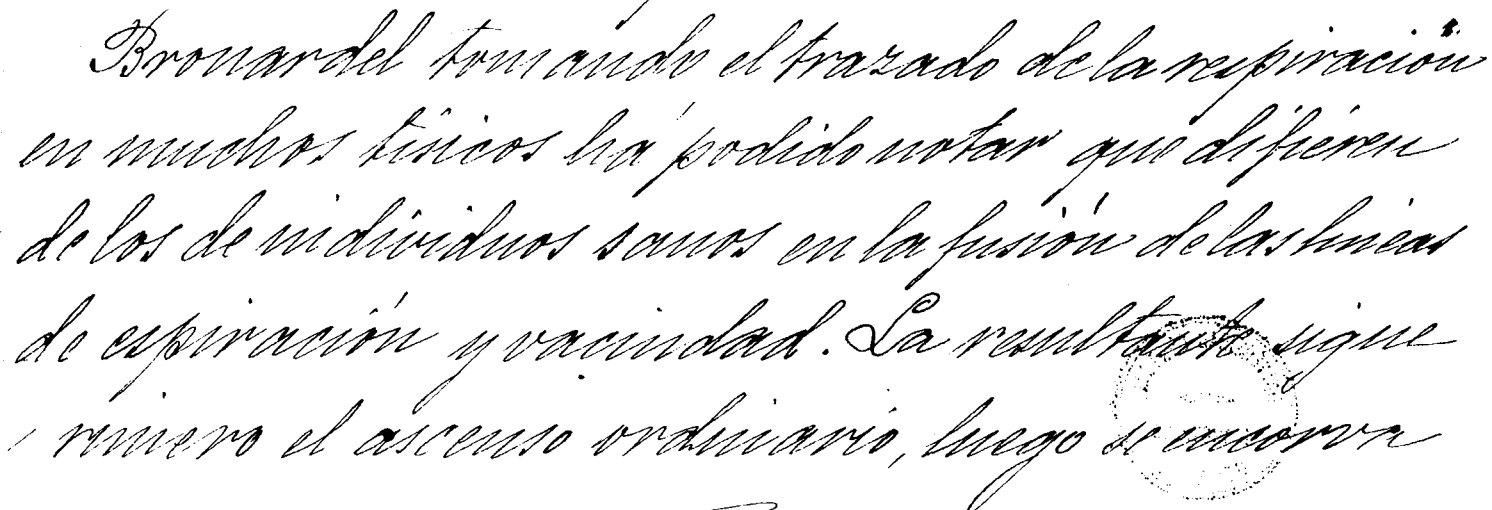 Brouardel tomando el trazado de la respiración
en muchos tísicos há podido notar que difiéren
de los de individuos sanos en la fusión de las líneas
de espiración y vacuidad. La resultante sigue
rimero el ascenso ordinario, luego se encorva